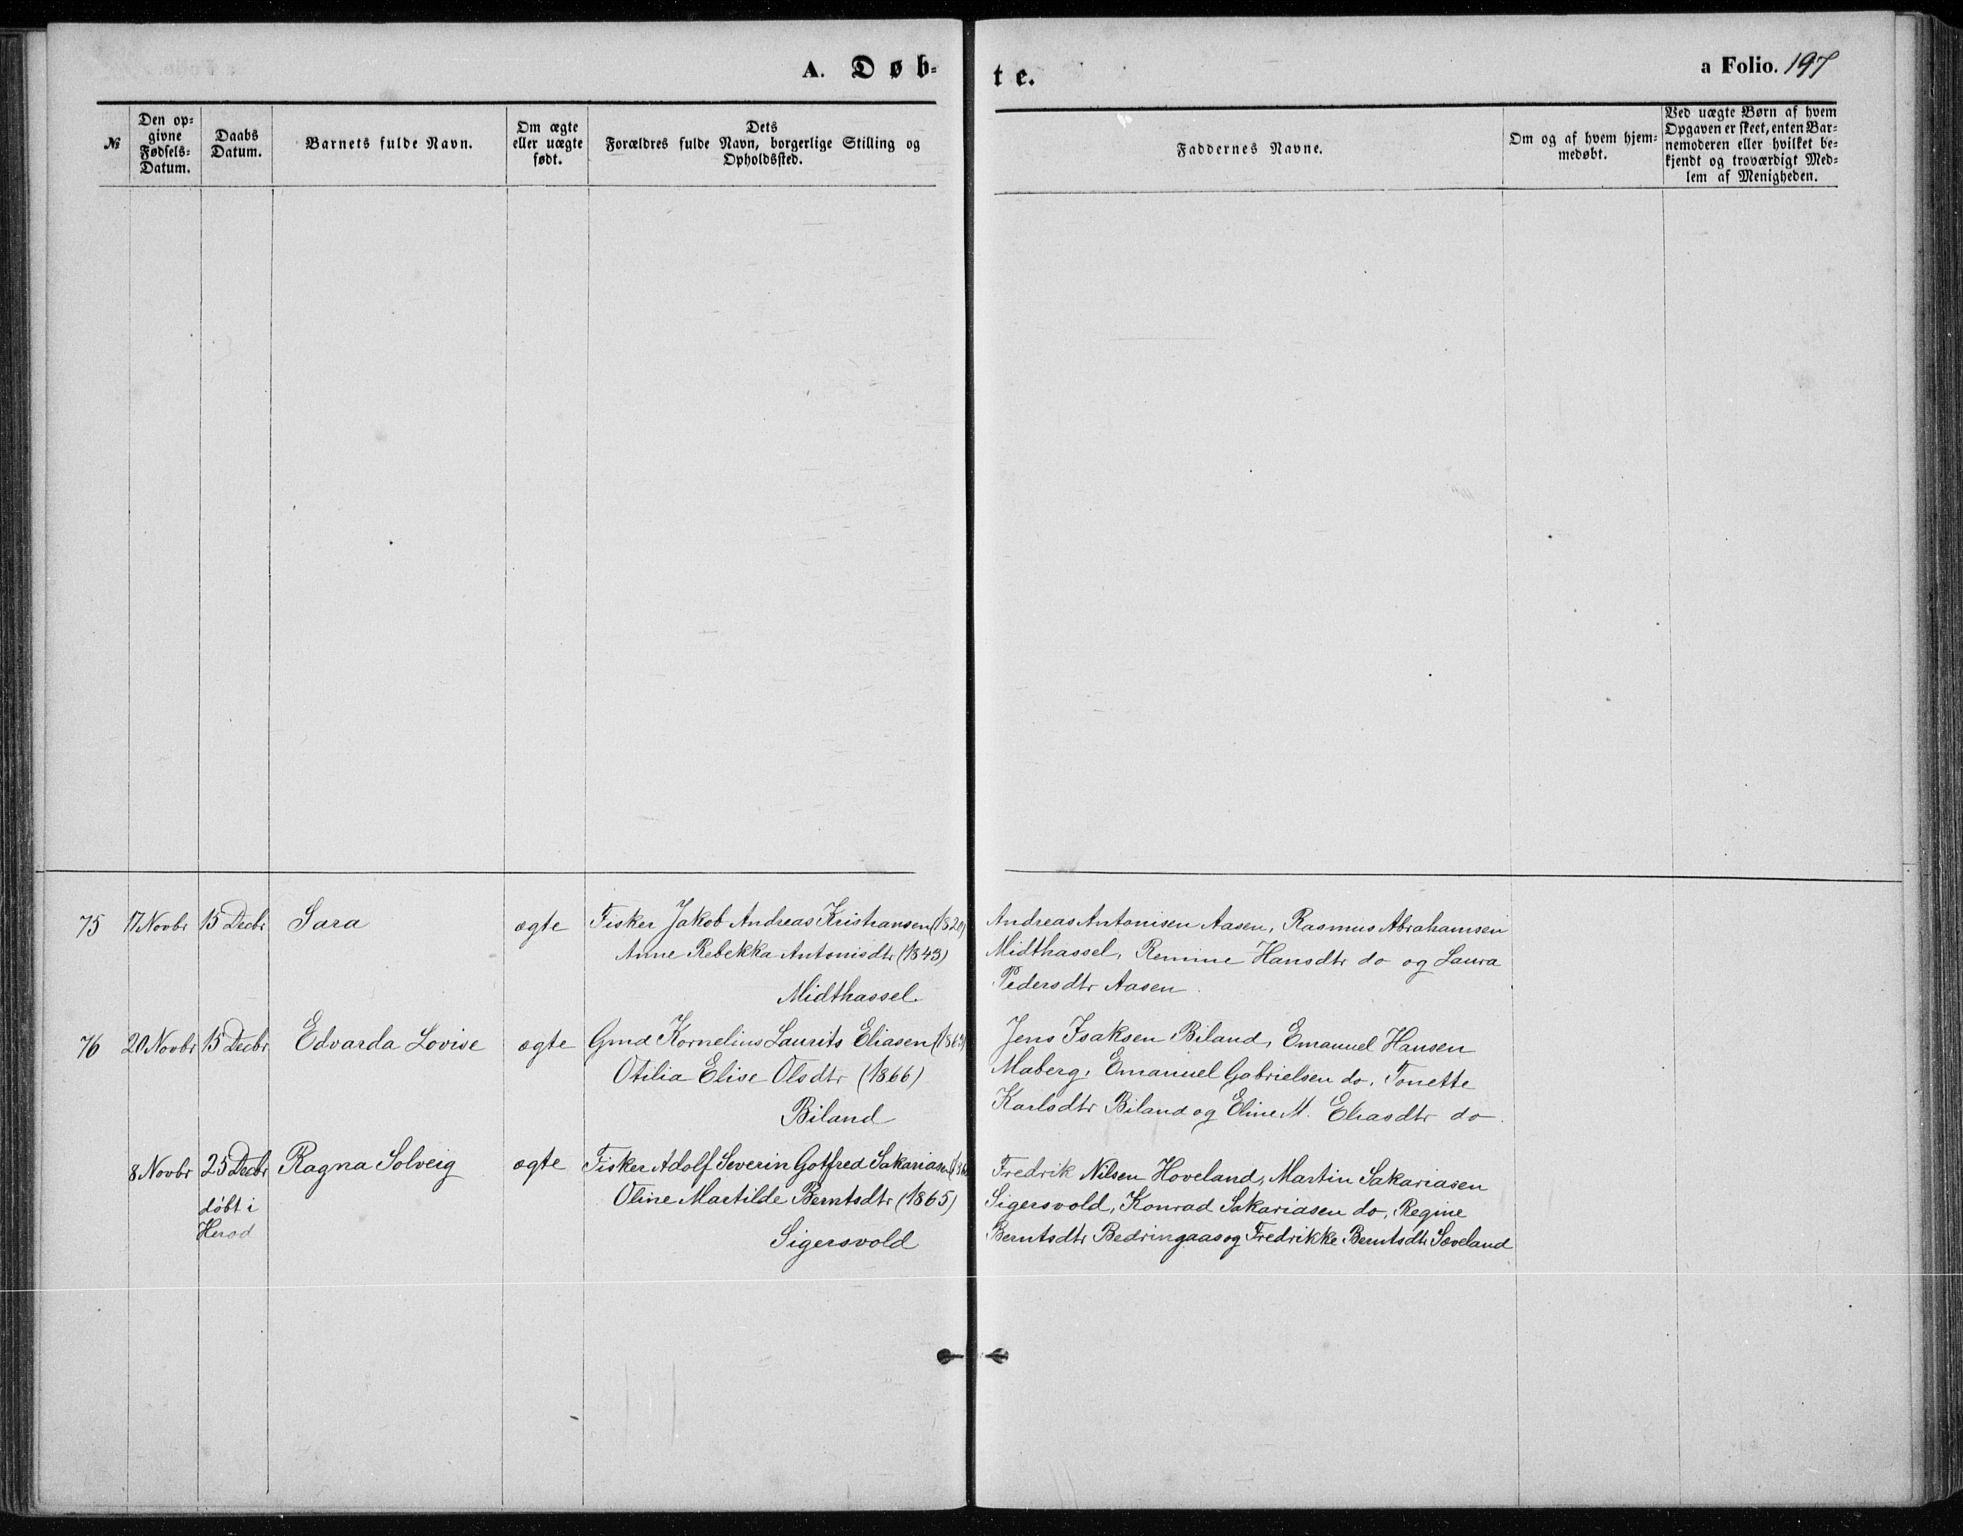 A. Døb-
te.
a Folio. 197
№
Den op-
givne
Fødsels-
Datum.
Daabs
Datum.
Barnets fulde Navn.
Om ægte
eller uægte
født.
Dets
Forældres fulde Navn, borgerlige Stilling og
Opholdssted.
Faddernes Navne.
Om og af hvem hjem-
medøbt.
Ved uægte Børn af hvem
Opgaven er skeet, enten Bar-
nemoderen eller hvilket be-
kjendt og troværdigt Med-
lem af Menigheden.
75 17 Novbr 15 Decbr Sara ægte Fisker Jakob Andreas Kristiansen
Anne Rebekka Antonisdtr (1843)
Midthassel.
Andreas Antonisen Aasen, Rasmus Abrahamsen
Midthassel, Remine Hansdtr do og Laura
Pedersdtr Aasen.
76 20 Novbr 15 Decbr Edvarda Lovise ægte Gmd Kornelius Laurits Eliasen
Otilia Elise Olsdtr (1866)
Biland
Jens Isaksen Biland, Emanuel Hansen
Maberg, Emanuel Gabrielsen do, Tonette
Karlsdtr Biland og Eline M. Eliasdtr do.
8 Novbr 25 Decbr Ragna Solveig ægte Fisker Adolf Severin Gotfred Sakariasen
døbt i
Herod
Oline Martilde Berntsdtr (1865)
Sigersvold
Fredrik Nilsen Hoveland, Martin Sakariasen
Sigersvold, Konrad Sakariasen do, Regine
Berntsdtr Bedringaas og Fredrikke Berntsdtr Soveland